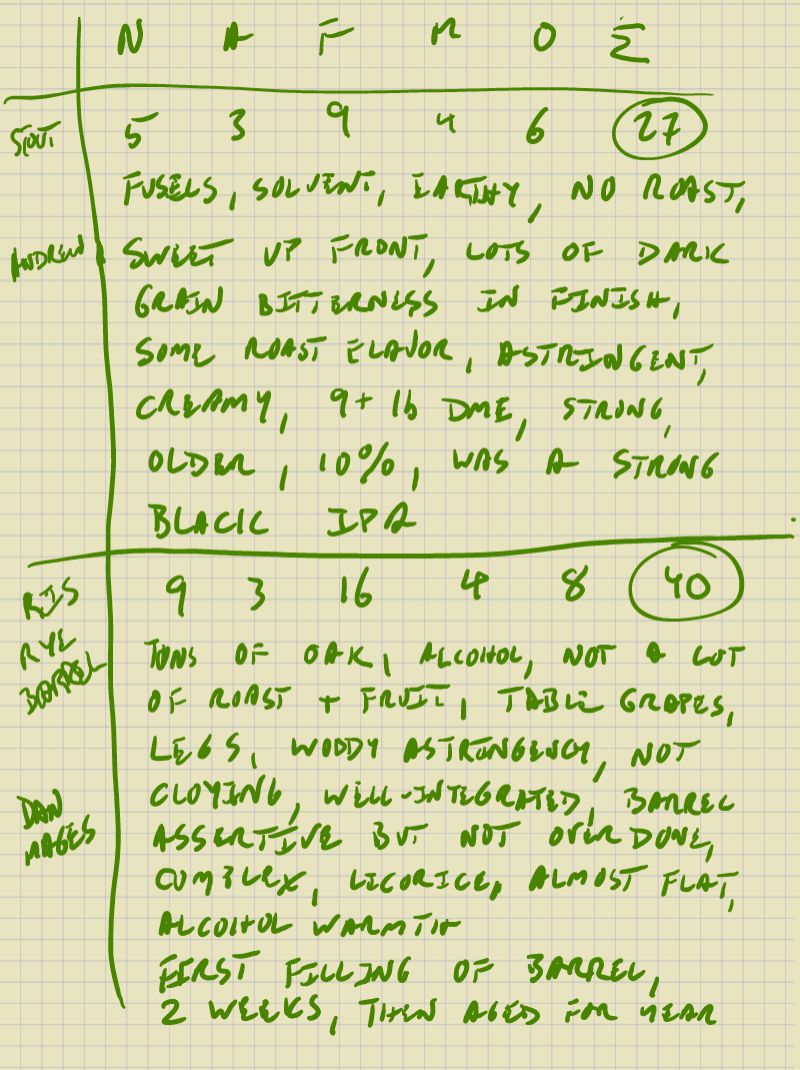 N A F M O Σ
STOUT 5 3 9 4 6 27
FUSELS, SOLVENT, EARTHY, NO ROAST,
ANDREW SWEET UP FRONT, LOTS OF DARK
GRAIN BITTERNESS IN FINISH,
SOME ROAST FLAVOR, ASTRINGENT,
CREAMY, 9+ lb DME, STRONG,
OLDER, 10%, WAS A STRONG
BLACK IPA
RIS 9 3 16 4 8 40
RYE TONS OF OAK, ALCOHOL, NOT A LOT
BARREL OF ROAST + FRUIT, TABLE GRAPES,
LEGS, WOODY ASTRINGENCY, NOT
DAN CLOYING, WELL-INTEGRATED, BARREL
MAGES ASSERTIVE BUT NOT OVERDONE,
COMPLEX, LICORICE, ALMOST FLAT,
ALCOHOL WARMTH
FIRST FILLING OF BARREL,
2 WEEKS, THEN AGED FOR YEAR